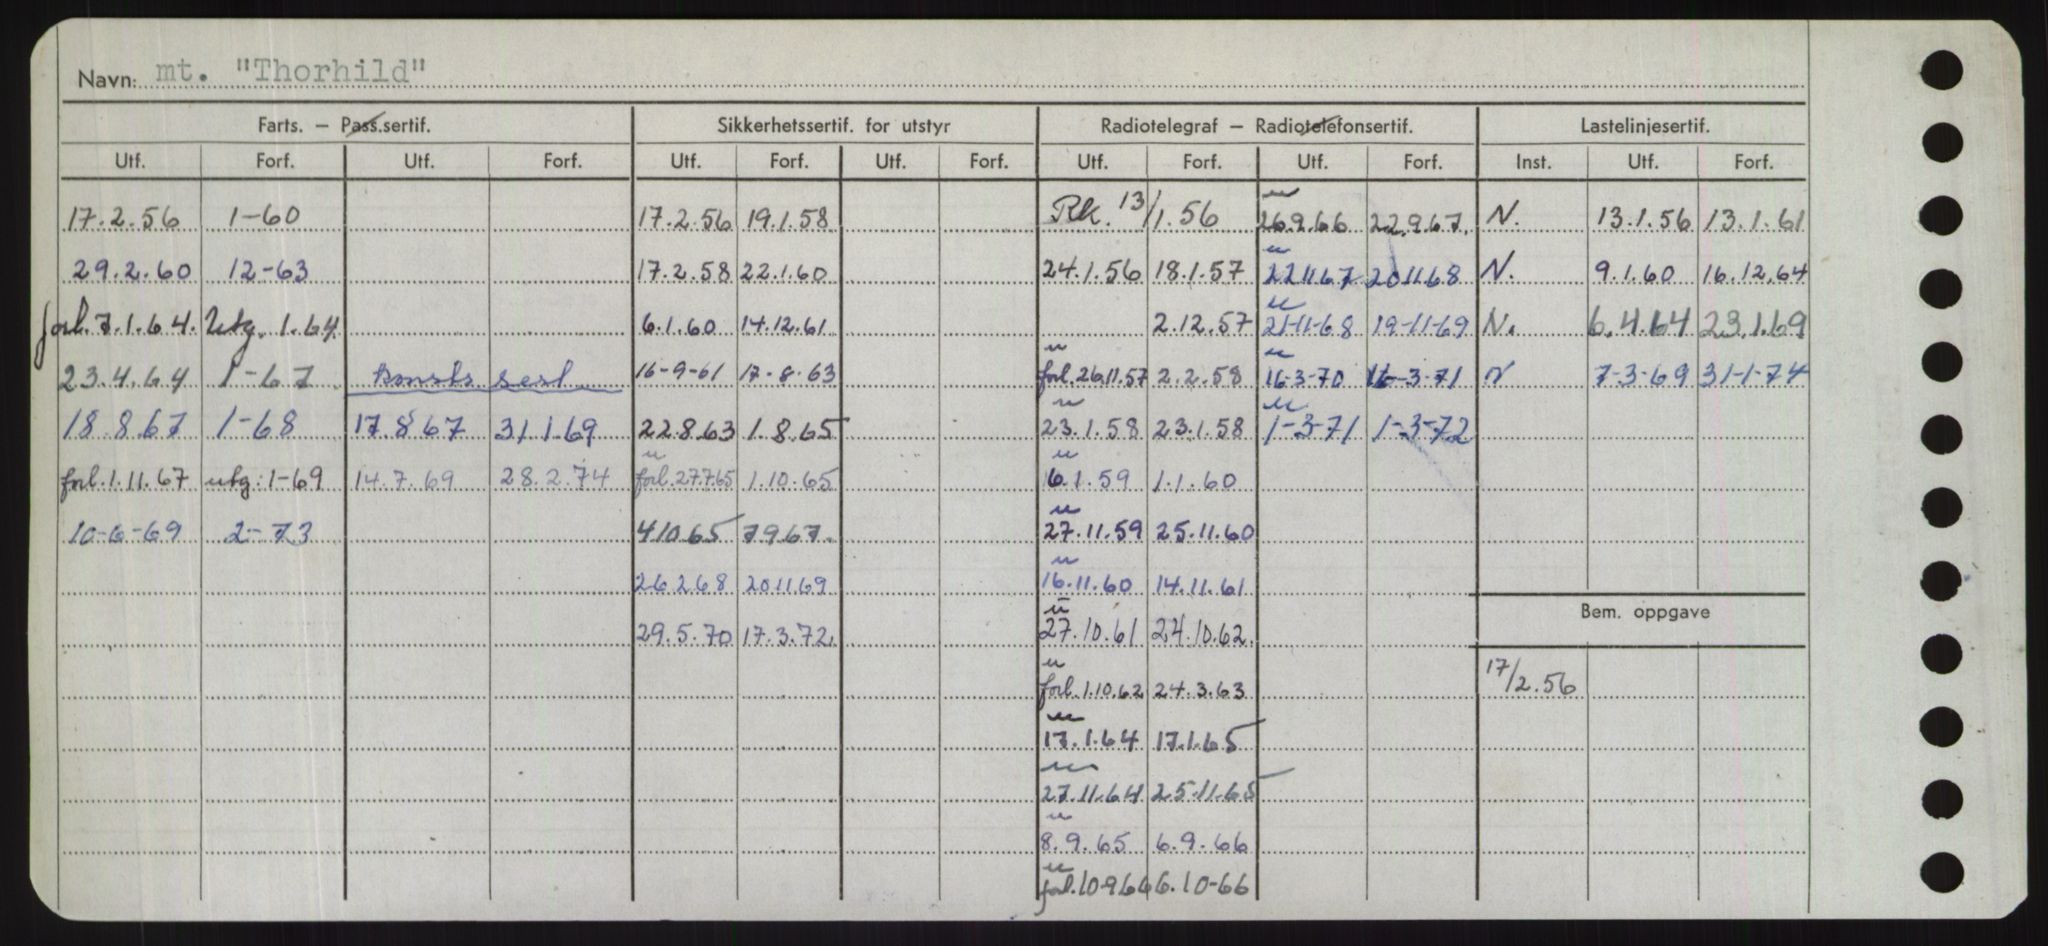 Navn: mt. "Thorhild"
Farts. – Pass.sertif. Sikkerhetssertif. for utstyr Radiotelegraf – Radiotelefonsertif. Lastelinjesertif.
Utf. Forf. Utf. Forf. Utf. Forf. Utf. Forf. Utf. Forf. Utf. Forf. Inst. Utf. Forf.
17.2.56 1-60 17.2.56 19.1.58 Rk. 13/1.56 u 26.9.66 22.9.67. N. 13.1.56 13.1.61
29.2.60 12-63 17.2.58 22.1.60 24.1.56 18.1.57 u 22.11.67 20.11.68 N. 9.1.60 16.12.64
forl. 7.1.64. Utg. 1.64. 6.1.60 14.12.61 2.12.57 u 21-11-68 19-11-69 N. 6.4.64 23.1.69
23.4.64 1-67 konstr. sert. 16-9-61 17-8-63 u forl. 26.11.57 2.2.58 u 16-3-70 16-3-71 N 7-3-69 31-1-74
18.8.67 1-68 17.8.67 31.1.69 22.8.63 1.8.65 u 23.1.58 23.1.58 u 1-3-71 1-3-72
forl. 1.11.67 utg: 1-69 14.7.69 28.2.74 u forl. 27.7.65 1.10.65 u 6.1.59 1.1.60
10-6-69 2-73 4.10.65 7.9.67. u 27.11.59 25.11.60
26.2.68 20.11.69 u 16.11.60 14.11.61
Bem. oppgave
29.5.70 17.3.72. u 27.10.61 24.10.62.
u forl. 1.10.62 24.3.63 17/2.56
u 17.1.64 17.1.65
u 27.11.64 25.11.65
u 8.9.65 6.9.66
u forl. 10-9.66 6.10-66